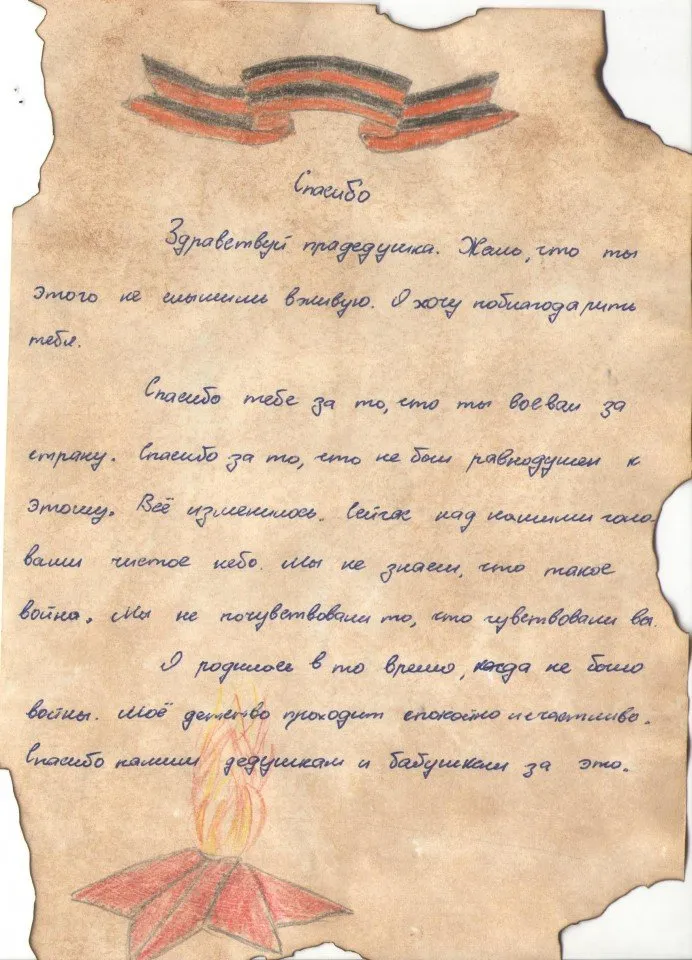 Спасибо
Здравствуй прадедушка. Жаль, что ты
этого не слышишь вживую. Я хочу поблагодарить
тебя.
Спасибо тебе за то, что ты воевал за
страну. Спасибо за то, что не был равнодушен к
этому. Всё изменилось. Сейчас над нашими голо-
вами чистое небо. Мы не знаем, что такое
война. Мы не почувствовали то, что чувствовали вы.
Я родилась в то время, когда не было
войны. Моё детство проходит спокойно и счастливо.
Спасибо нашим дедушкам и бабушкам за это.